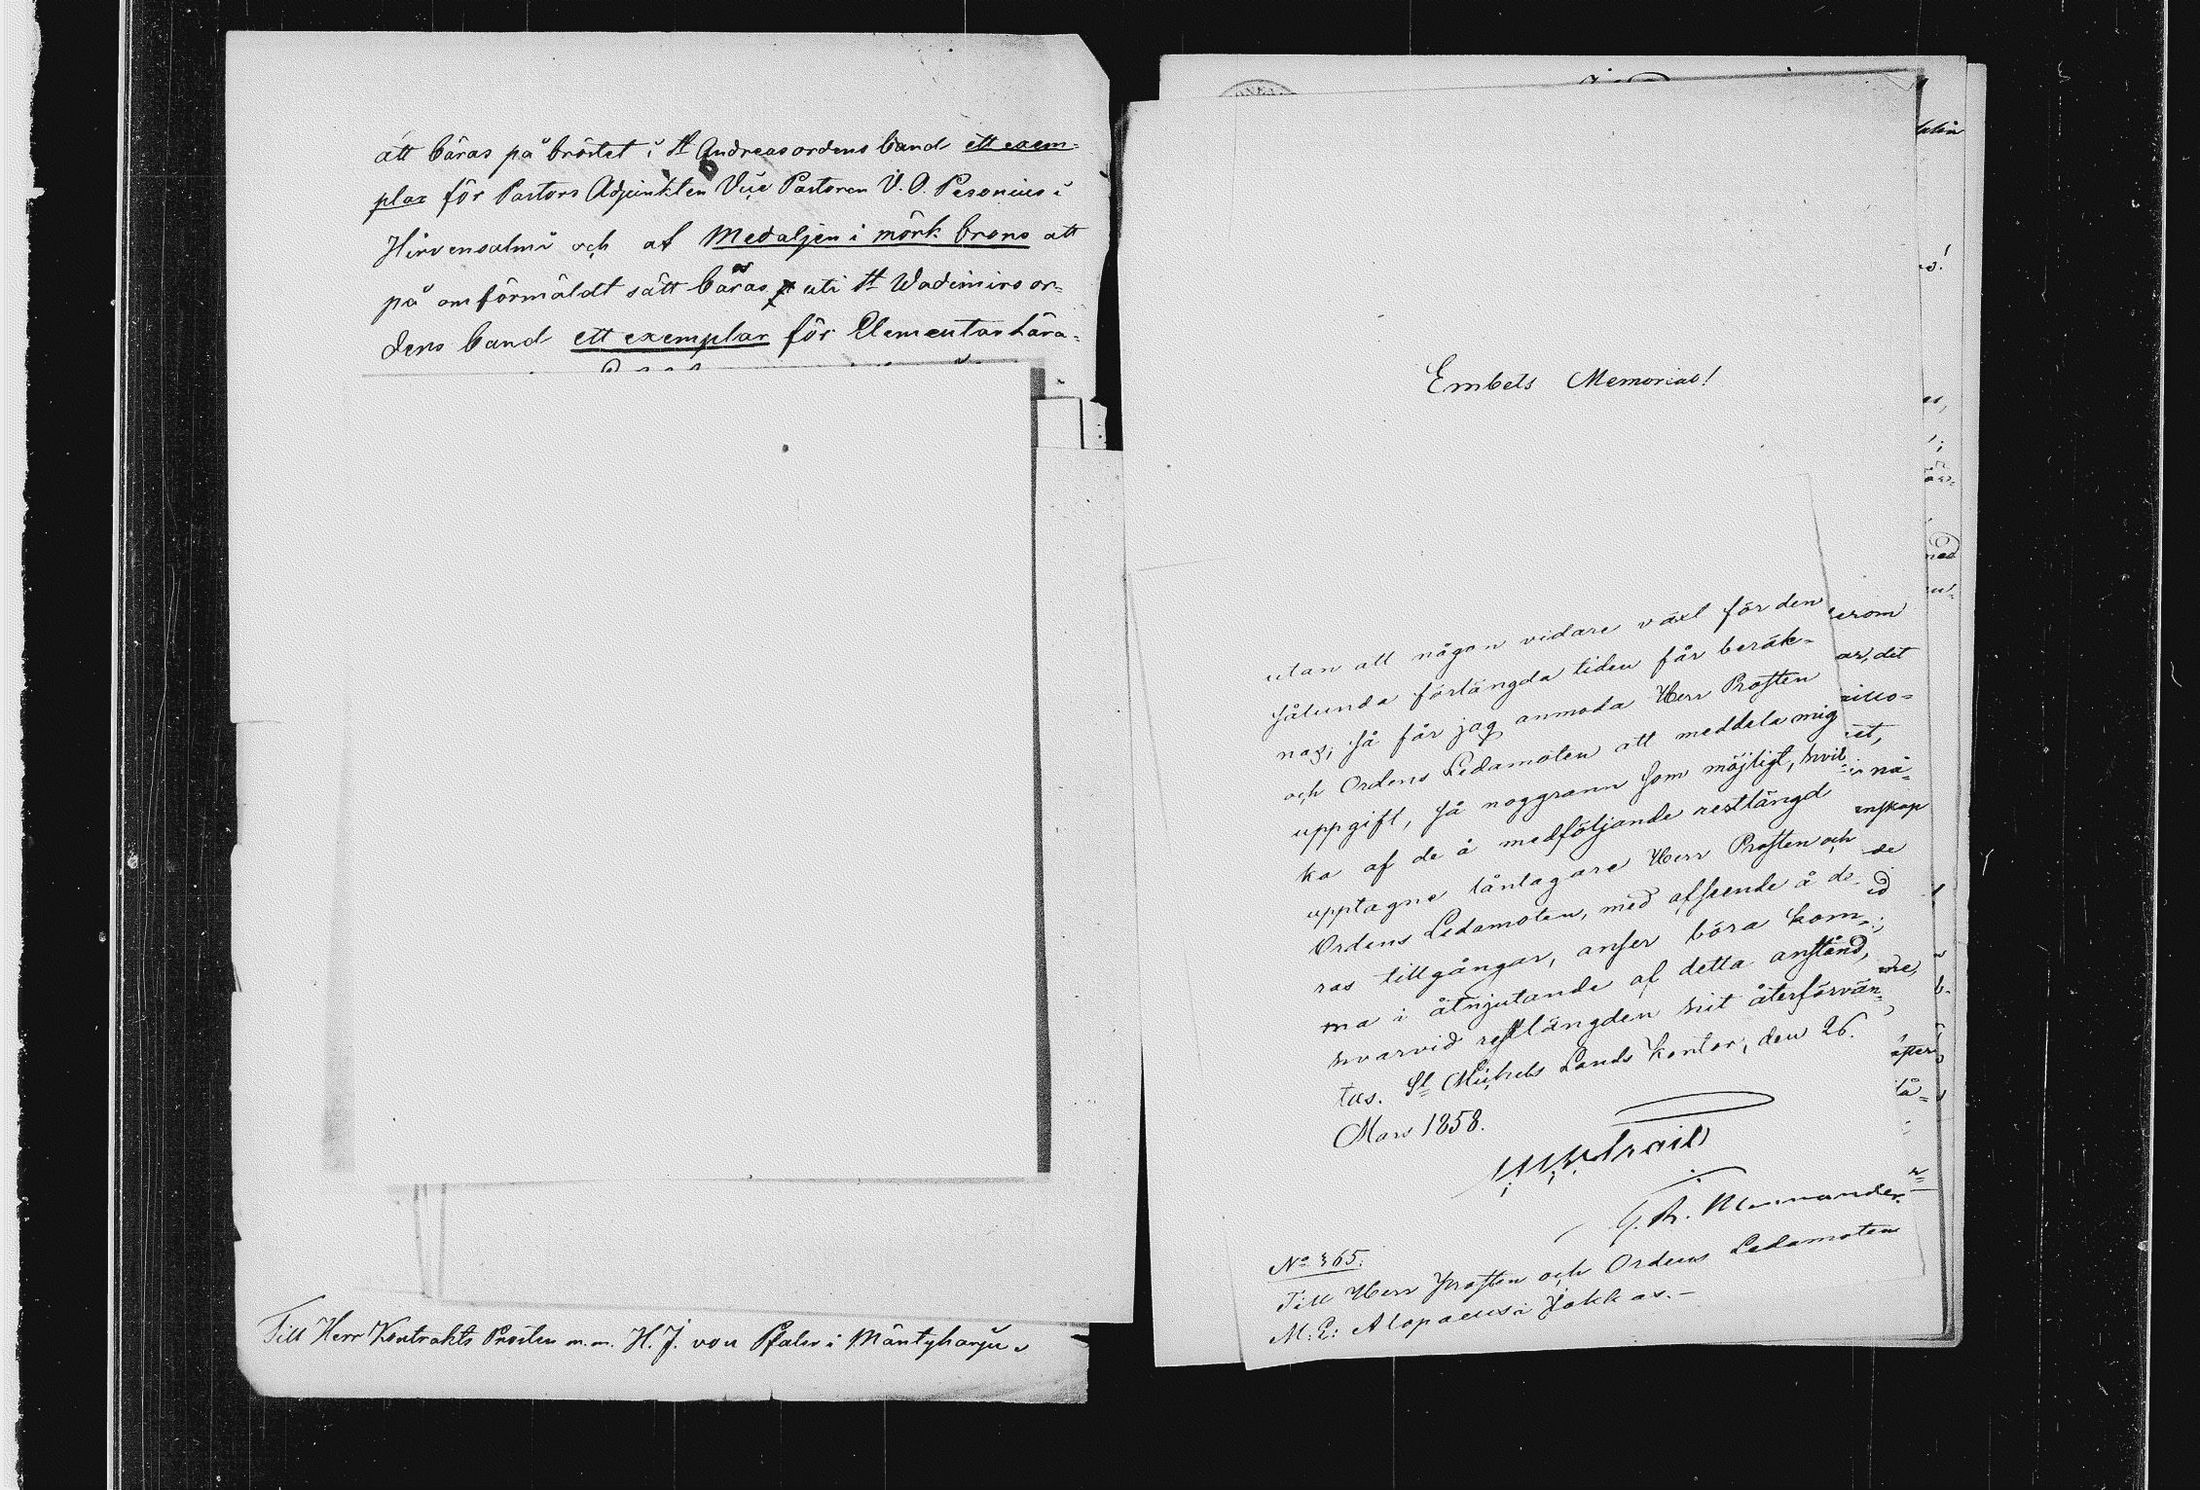 att bäras på bröstet i St Andreasordens band ett exem-
plar för Pastors Adjunkten Vice Pastoren V. O. Pesonius i
Hirvensalmi och af Medaljen i mörk brons att
på omförmäldt sätt bäras uti St Wadimirs or-
dens band ett exemplar för Elementarlära-
Till Herr Kontrakts Prosten m.m. H. J. von Pfaler i Mäntyharju.
Embets Memorial!
utan att någon vidare växt för den
sålunda förlängda tiden får beräk-
nas; så får jag anmoda Herr Prosten
och Ordens Ledamoten att meddela mig
uppgift, så noggrann som möjligt, hvil
ka af de å medföljande restlängd
upptagne låntagare Herr Prosten och
Ordens Ledamoten, med afseende å de-
ras tillgångar, anser böra kom-
ma i åtnjutande af detta anstånd,
hvarvid restlängden hit återförvän-
tas. St Michels Lands Kontor, den 26.
Mars 1858.
No 365.
Till Herr Prosten och Ordens Ledamoten
M: E: Alopaeus i Jokkas.-